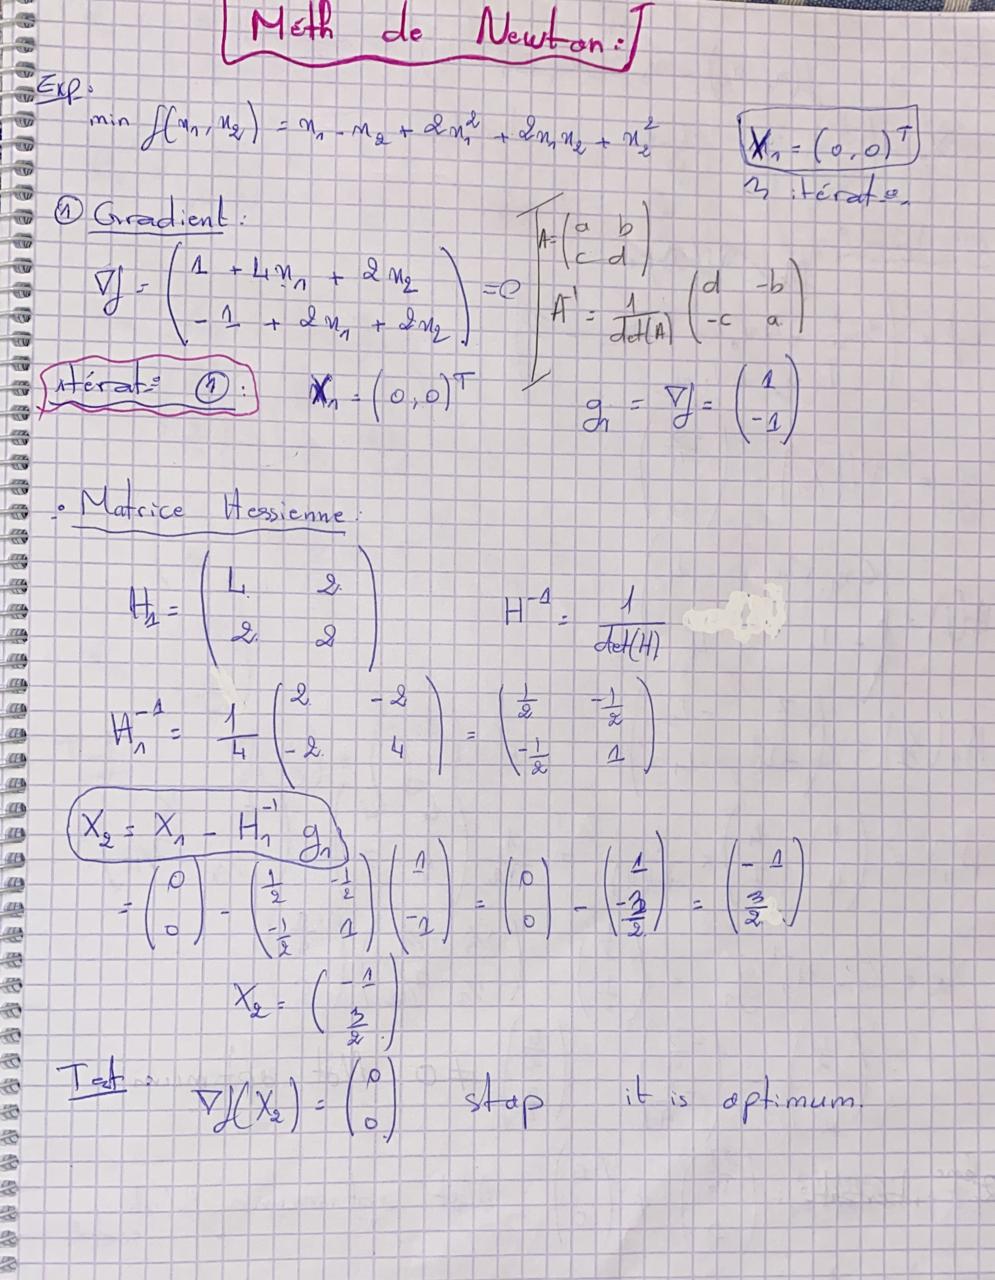 Méth de Newton :
Exp:
min f(x₁, x₂) = x₁ - x₂ + 2x₁² + 2x₁x₂ + x₂²
X₁ = (0,0)ᵀ
3 itérat°.
① Gradient :
A = (a b; c d)
∇f = (1 + 4x₁ + 2x₂; -1 + 2x₁ + 2x₂) = 0
A⁻¹ = 1/det(A) (d -b; -c a)
itérat° ① :
X₁ = (0,0)ᵀ
g₁ = ∇f = (1; -1)
• Matrice Hessienne :
H₁ = (4 2; 2 2)
H⁻¹ = 1/det(H)
H₁⁻¹ = 1/4 (2 -2; -2 4) = (1/2 -1/2; -1/2 1)
X₂ = X₁ - H₁⁻¹ g₁
= (0; 0) - (1/2 -1/2; -1/2 1) (1; -1) = (0; 0) - (1; -3/2) = (-1; 3/2)
X₂ = (-1; 3/2)
Test :
∇f(X₂) = (0; 0) stop it is optimum.